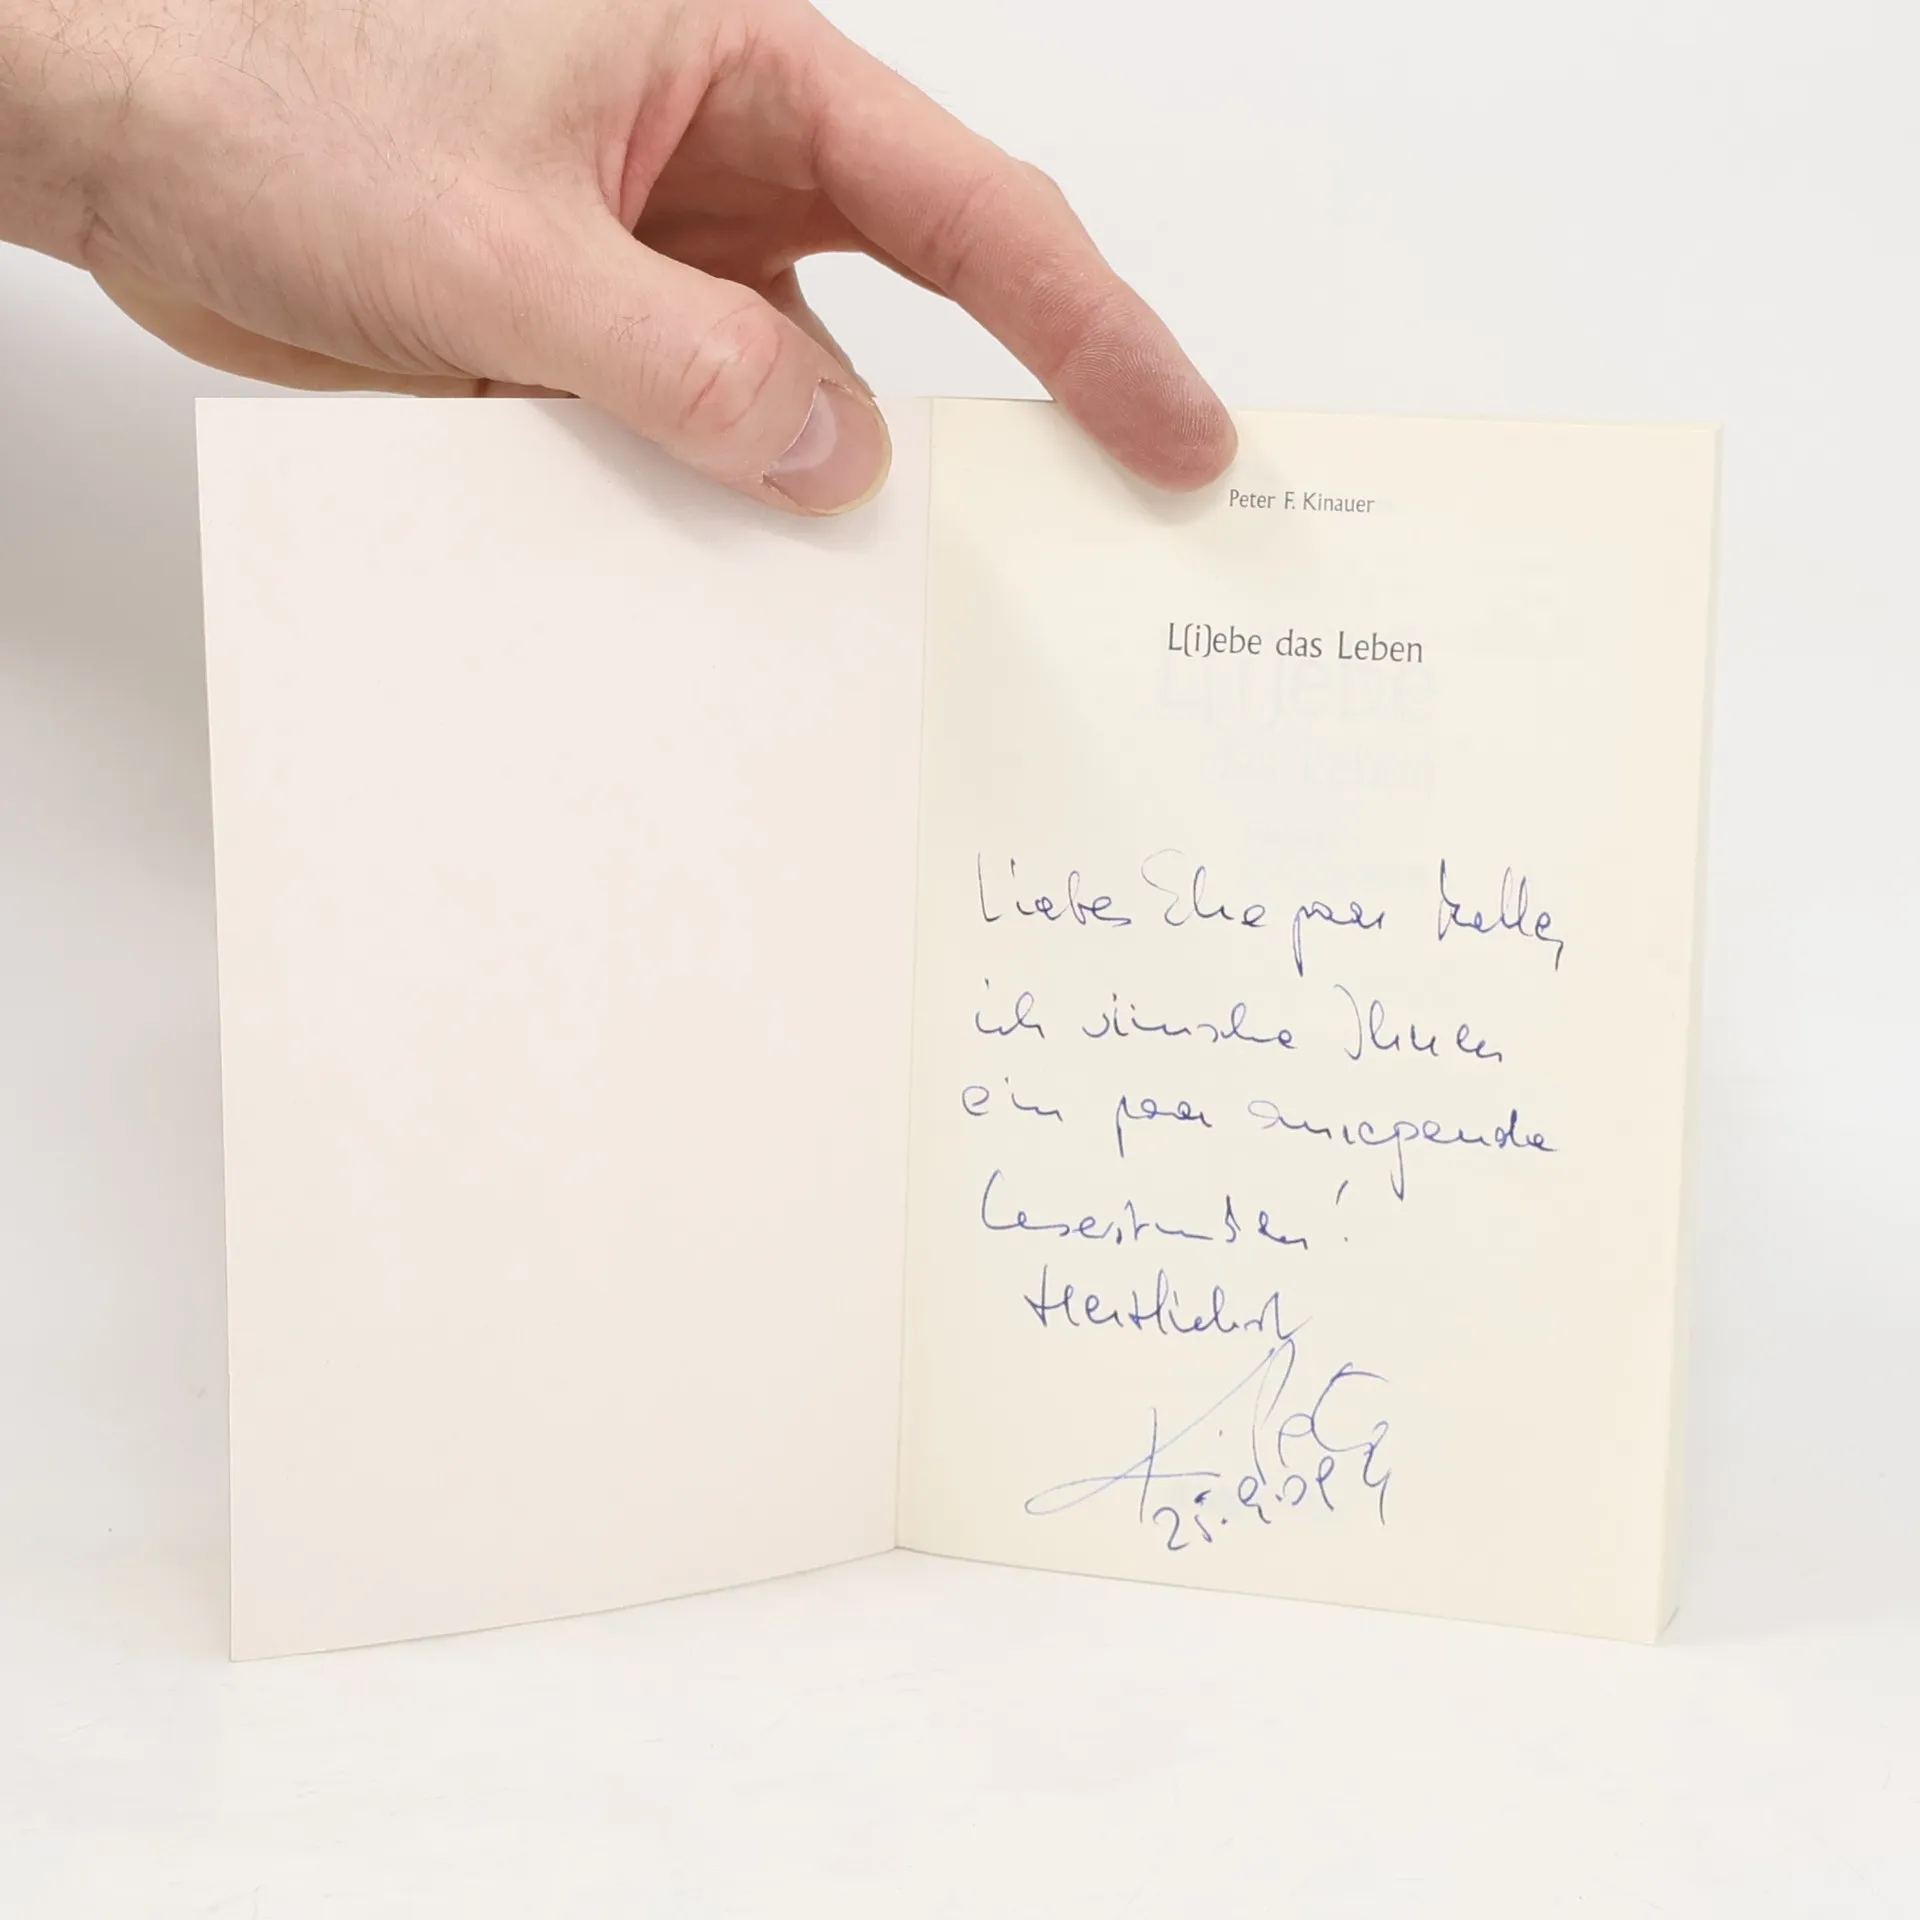 Peter F. Kinauer
L(i)ebe das Leben
Liebes Ehepaar
ich wünsche Ihnen
ein paar anregende
Lesestunden!
Herzlichst